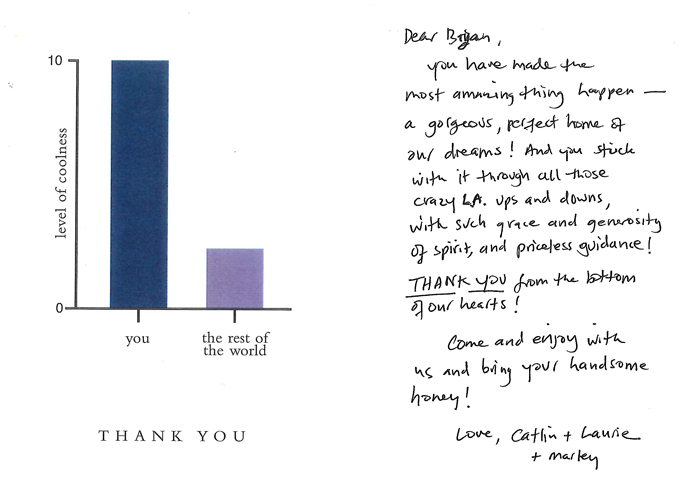 10
level of coolness
0
you
the rest of
the world
THANK YOU
Dear Bryan,
you have made the
most amazing thing happen —
a gorgeous, perfect home of
our dreams! And you stuck
with it through all those
crazy L.A. ups and downs,
with such grace and generosity
of spirit, and priceless guidance!
THANK YOU from the bottom
of our hearts!
Come and enjoy with
us and bring your handsome
honey!
Love, Catlin + Laurie
+ Marley